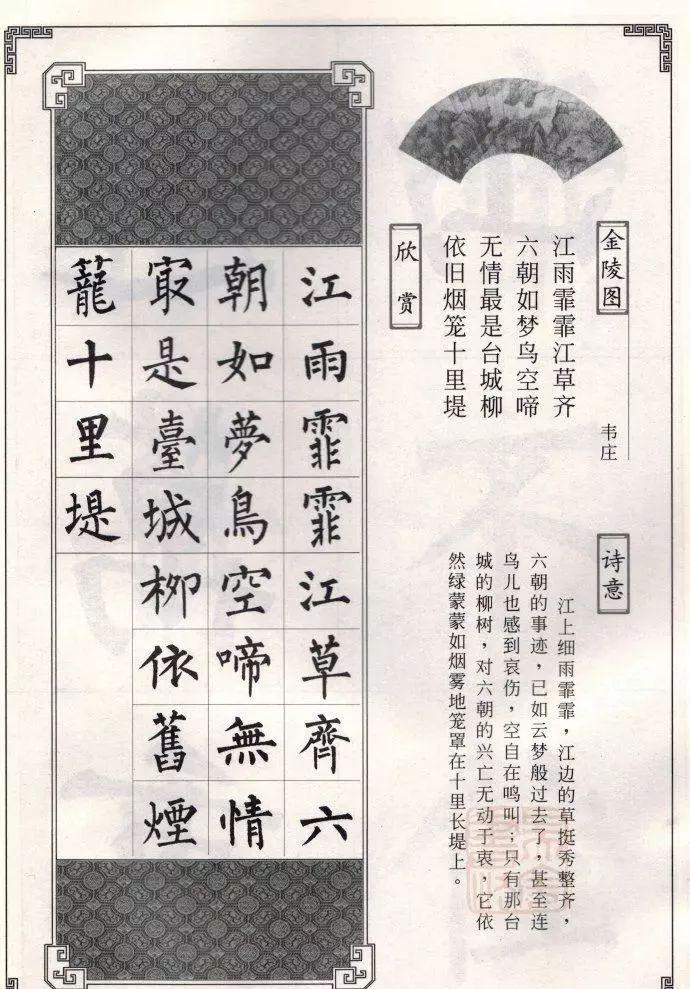 金陵图
韦庄
江雨霏霏江草齐
六朝如梦鸟空啼
无情最是台城柳
依旧烟笼十里堤
诗意
江上细雨霏霏，江边的草挺秀整齐，
六朝的事迹，已如云梦般过去了，甚至连
鸟儿也感到哀伤，空自在鸣叫；只有那台
城的柳树，对六朝的兴亡无动于衷，它依
然绿蒙蒙如烟雾地笼罩在十里长堤上。
欣赏
江雨霏霏江草齊六
朝如夢鳥空啼無情
冣是臺城柳依舊煙
籠十里堤